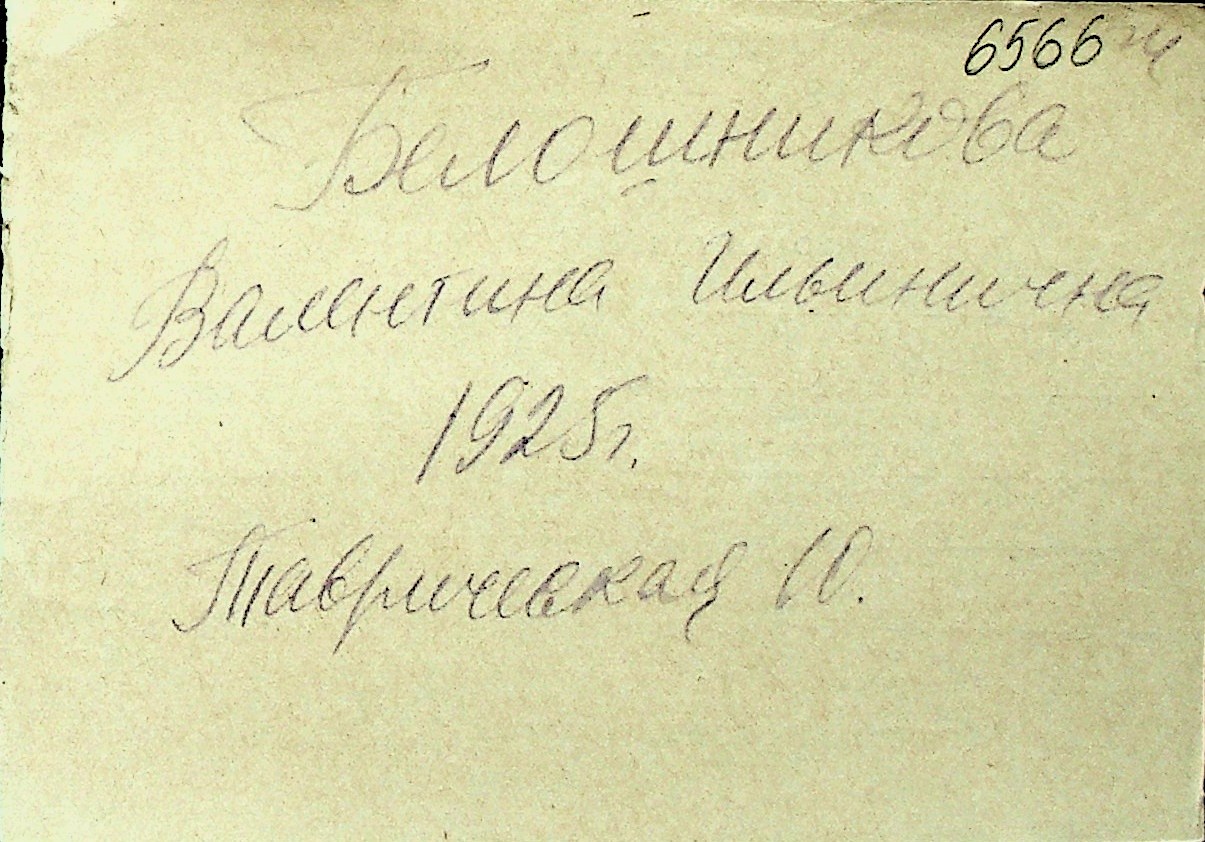 6566
Белошникова
Валентина Ильинична
1925г.
Таврическая 10.